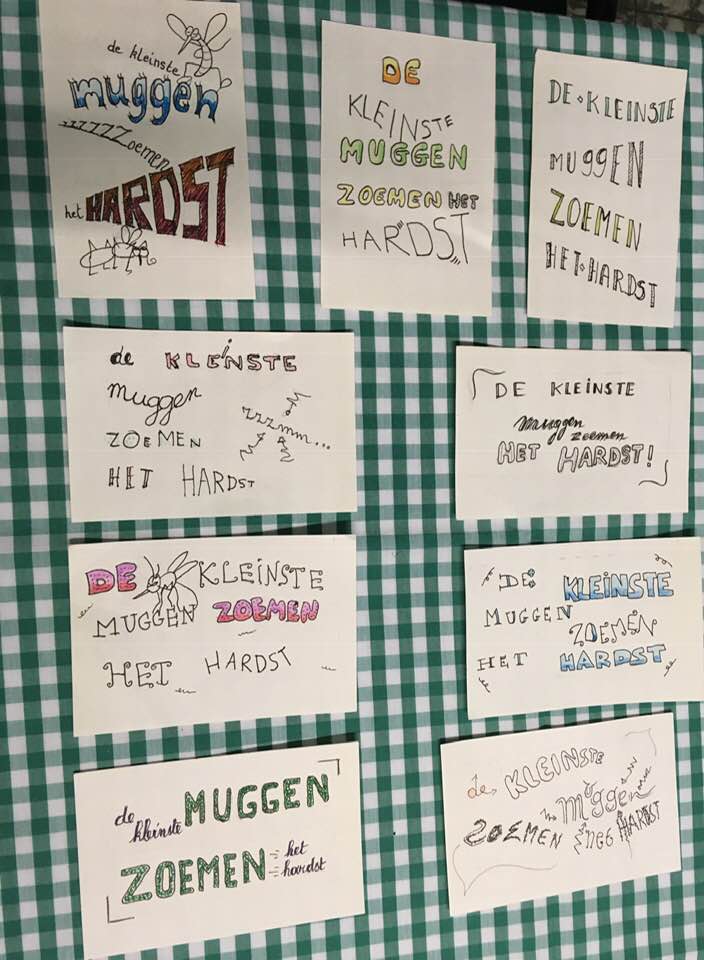 de kleinste
muggen
zzzzZZoemen
het HARDST
DE
KLEINSTE
MUGGEN
ZOEMEN HET
HARDST
DE KLEINSTE
MUGGEN
ZOEMEN
HET HARDST
de KLEINSTE
muggen
ZOEMEN
zzzmm...
HET HARDST
DE KLEINSTE
muggen
zoemen
HET HARDST!
DE KLEINSTE
MUGGEN ZOEMEN
HET HARDST
DE KLEINSTE
MUGGEN
ZOEMEN
HET HARDST
de kleinste MUGGEN
ZOEMEN het
hardst
de KLEINSTE
muggen
ZOEMEN het HARDST